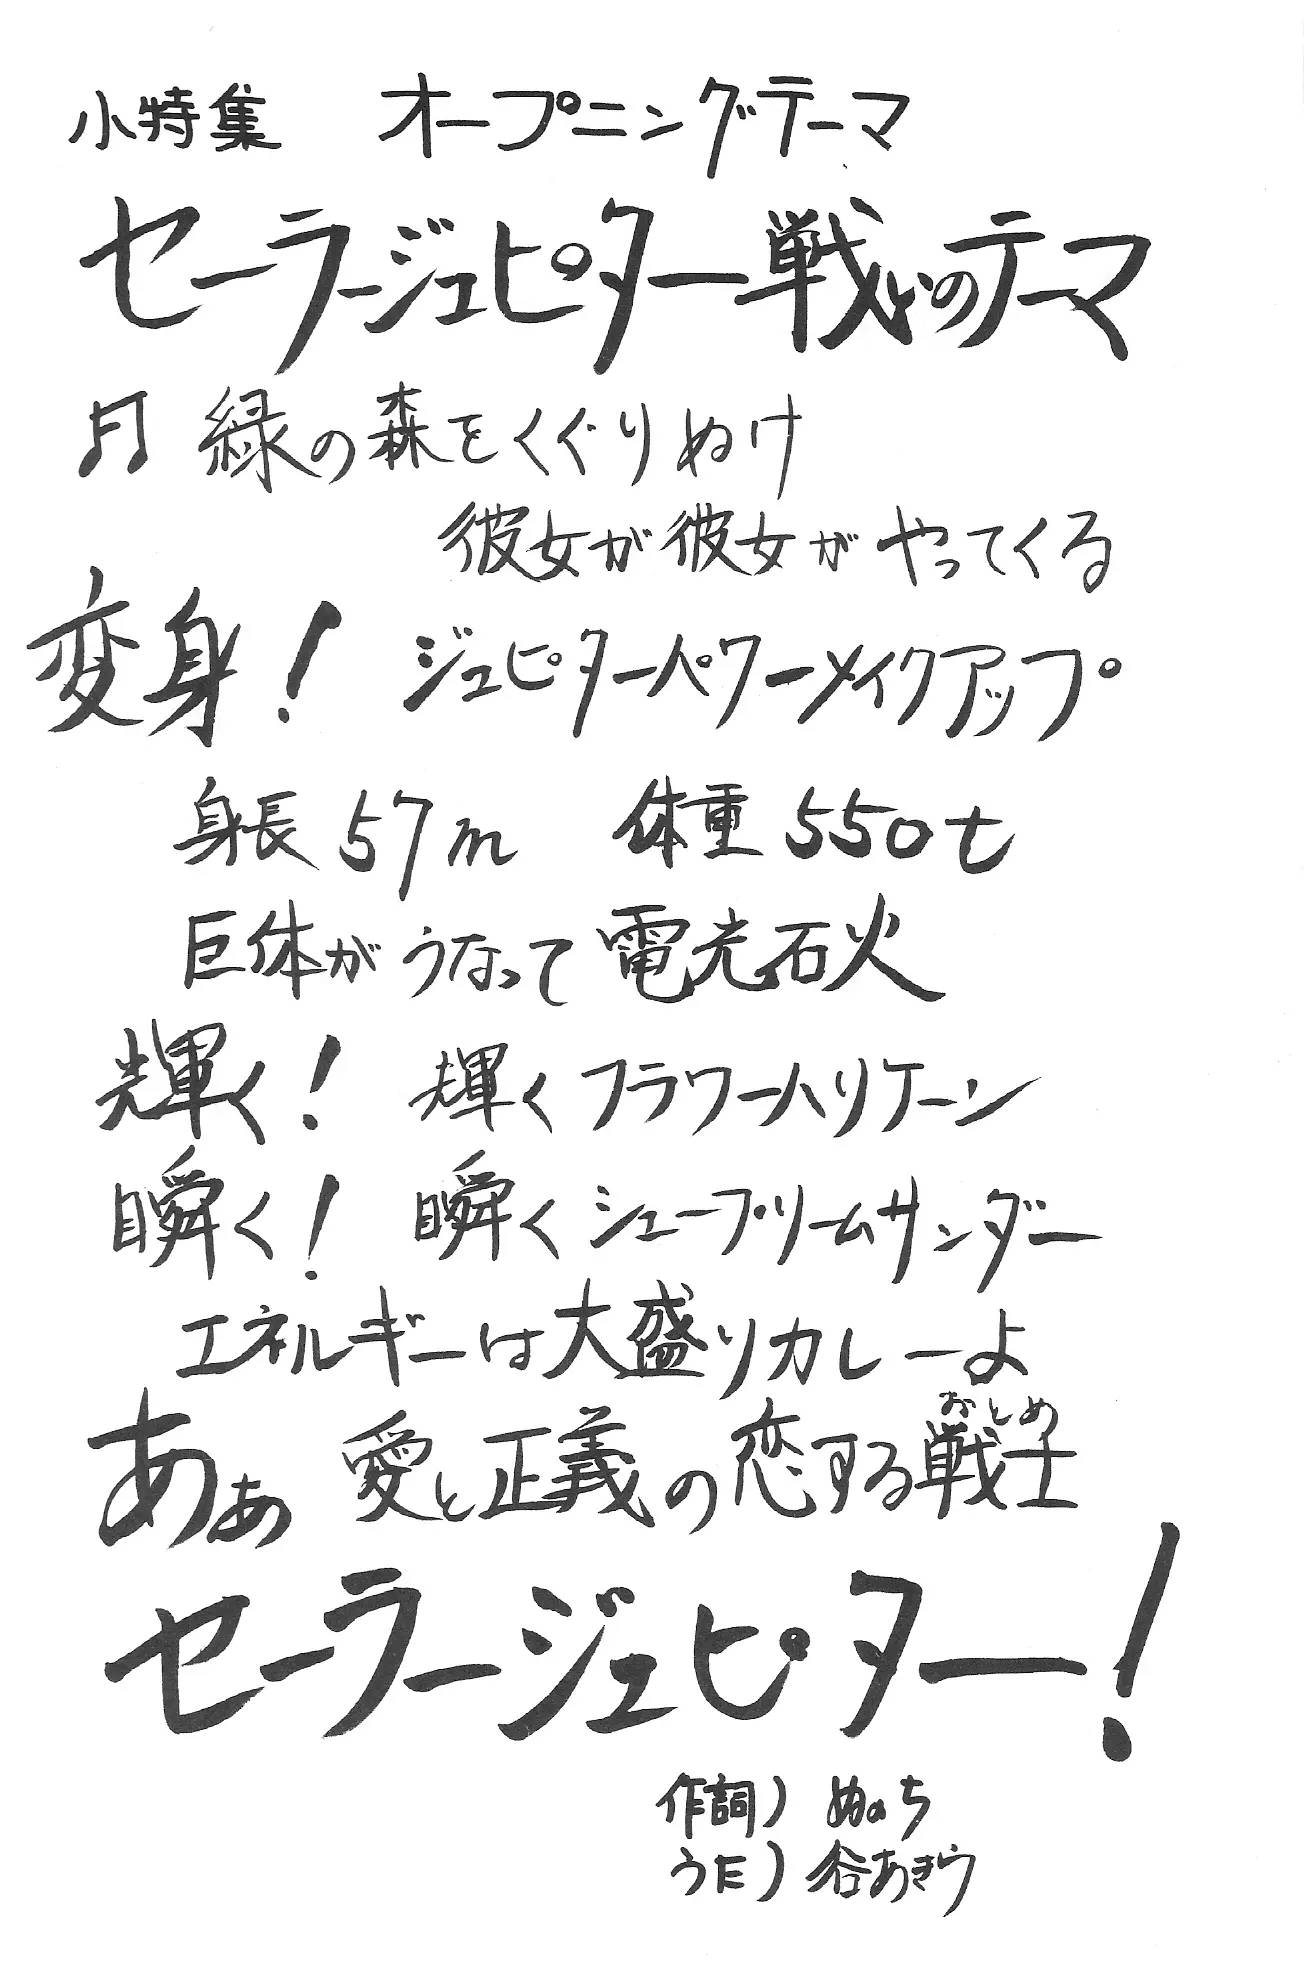 小特集 オープニングテーマ
セーラージュピター戦いのテーマ
♫ 緑の森をくぐりぬけ
彼女が彼女がやってくる
変身! ジュピターパワーメイクアップ
身長57m 体重550t
巨体がうなって電光石火
輝く! 輝くフラワーハリケーン
瞬く! 瞬くシュープリームサンダー
エネルギーは大盛りカレーよ
おとめ
あぁ 愛と正義の恋する戦士
セーラージュピター!
作詞) ぬのち
うた) 谷あきら